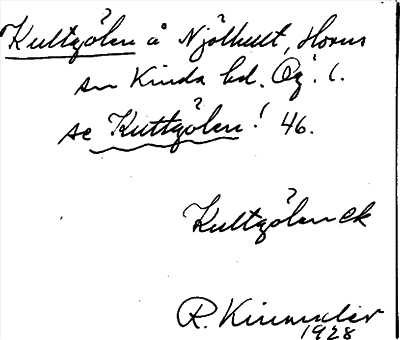 Kultgölen å Njölhult, Horns
sn Kinda hd. Ög. l.
se Kuttgölen! 46.
Kultgölen ek
R. Kinnander
1928